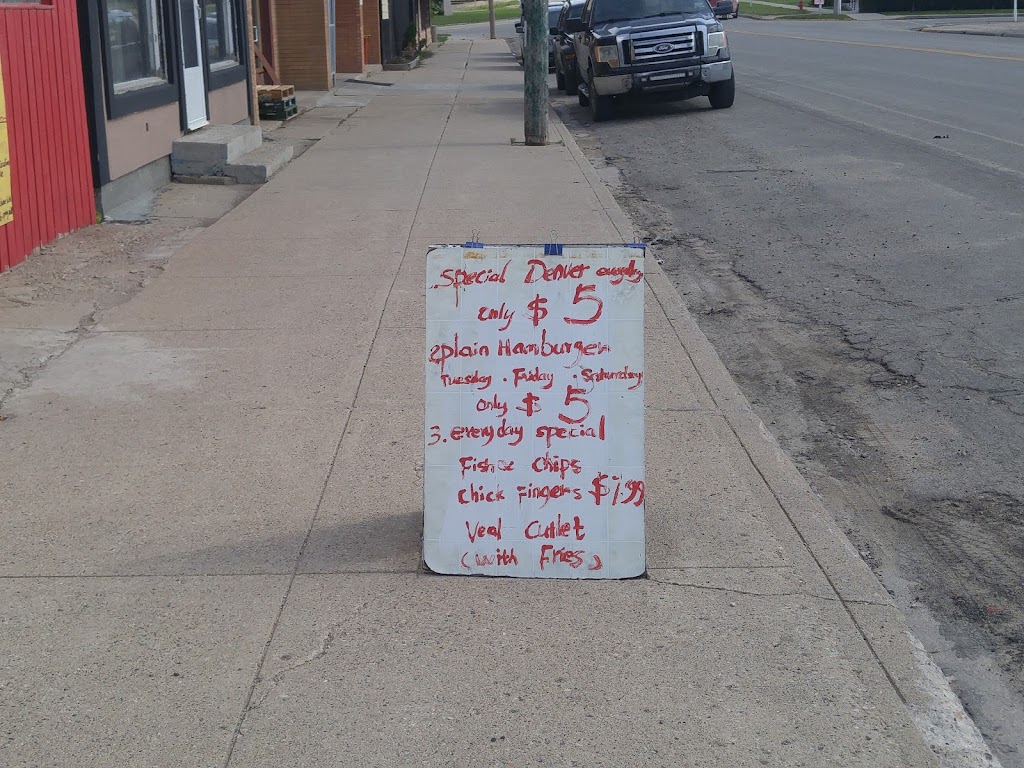 Special Denver everyday
only $ 5
2 plain Hamburger
Tuesday . Friday . Saturday
only $ 5
3. everyday special
Fish & chips
chick Fingers $7.99
Veal Cutlet
(with Fries)